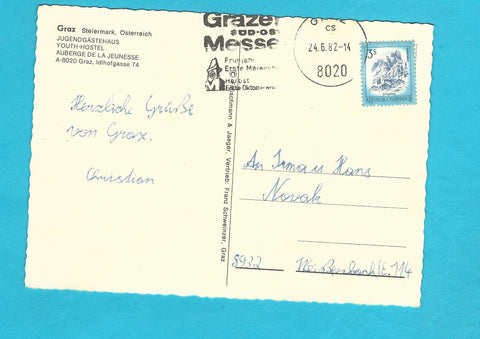 Graz Steiermark, Österreich
JUGENDGÄSTEHAUS
YOUTH-HOSTEL
AUBERGE DE LA JEUNESSE
A-8020 Graz, Idlhofgasse 74
Grazer
SÜD-OST
Messe
Frühjahr
Erste Maiwoche
Herbst
Erste Oktoberwoche
GRAZ
CS
24.6.82-14
8020
3s
REPUBLIK ÖSTERREICH
Herzliche Grüße
von Graz.
Christian
& Jaeger, Vertrieb: Franz Schweinzer, Graz
An Irma u Hans
Novak
8932 Weißenbach/E. 114